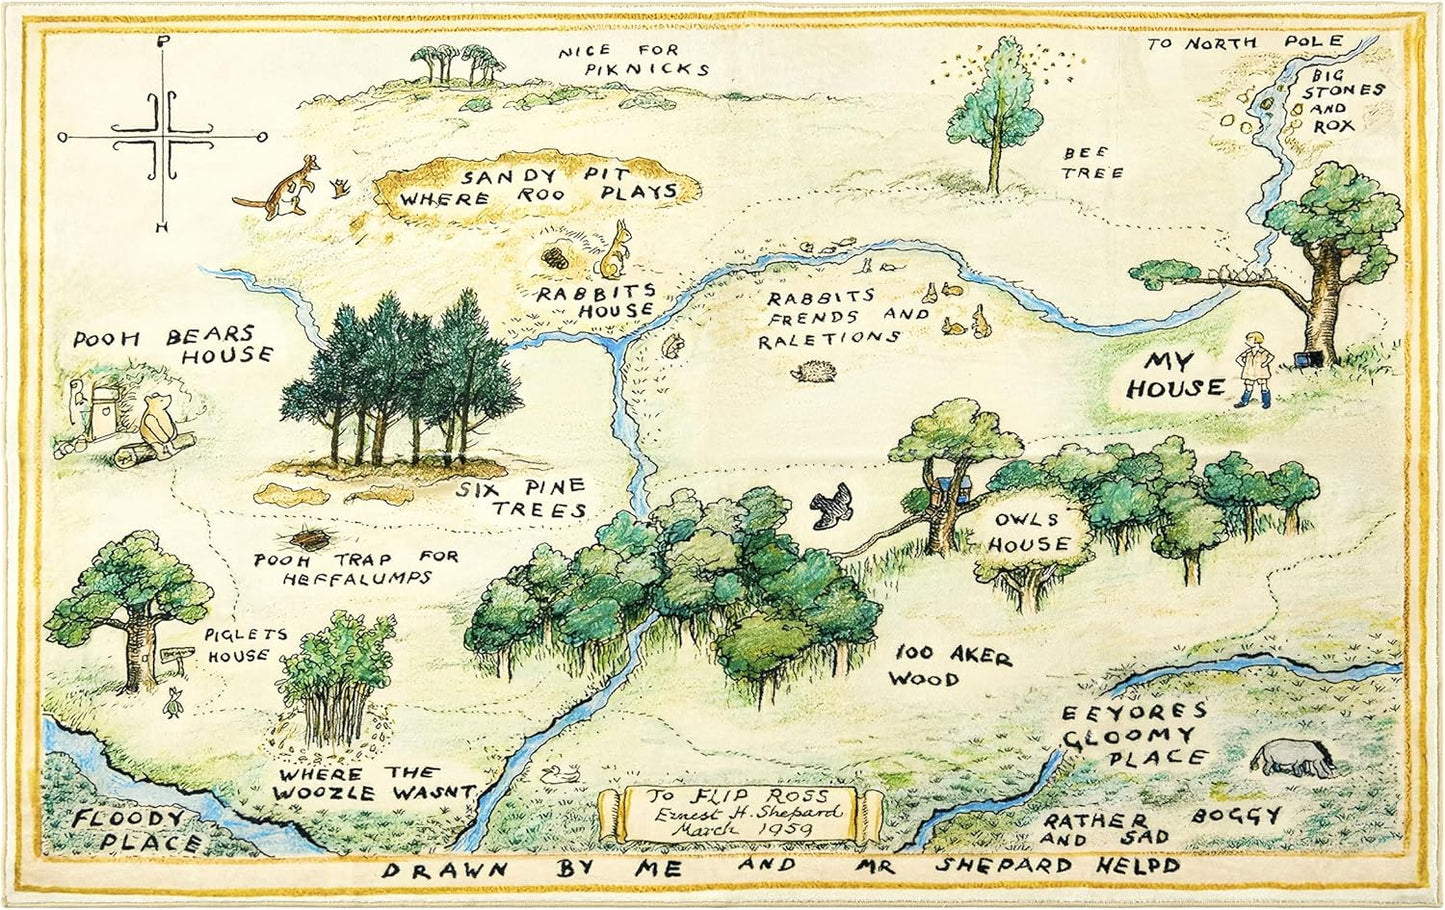 P
H
NICE FOR
PIKNICKS
TO NORTH POLE
BIG
STONES
AND
ROX
BEE
TREE
SANDY PIT
WHERE ROO PLAYS
RABBITS
HOUSE
RABBITS
FRENDS AND
RALETIONS
POOH BEARS
HOUSE
MY
HOUSE
SIX PINE
TREES
OWLS
HOUSE
POOH TRAP FOR
HEFFALUMPS
PIGLETS
HOUSE
100 AKER
WOOD
EEYORES
GLOOMY
PLACE
WHERE THE
WOOZLE WASNT
TO FLIP ROSS
Ernest H. Shepard
March 1959
FLOODY
PLACE
RATHER BOGGY
AND SAD
DRAWN BY ME AND MR SHEPARD HELPD